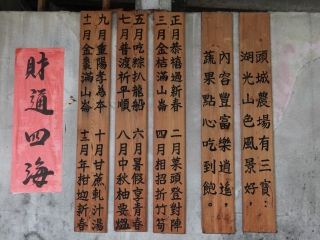 頭城農場有三寶：
湖光山色風景好，
內容豐富樂逍遙，
蔬果點心吃到飽。
正月恭禧過新春 二月菜頭登對陣
三月金桔滿山崙 四月相招折竹筍
五月吃粽扒龍船 六月暑假享青春
七月普渡祈平順 八月中秋柚
九月重陽孝為本 十月甘蔗軋汁湯
十一月金棗滿山崙 十二月年柑迎新春
財通四海